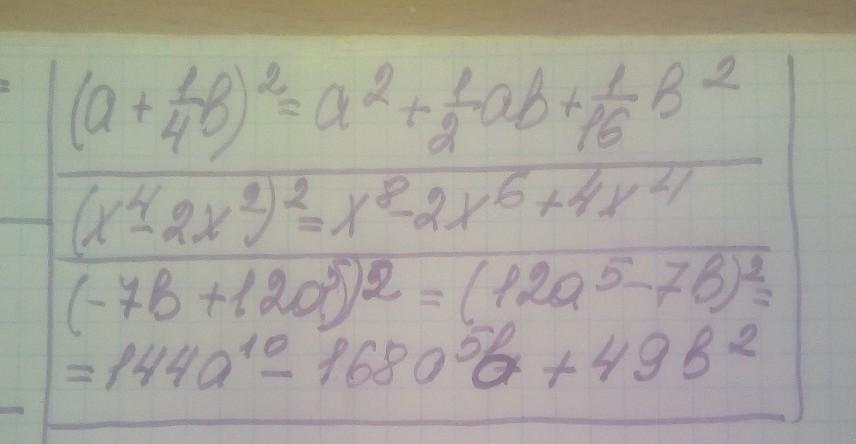 (a + 1/4 b)² = a² + 1/2 ab + 1/16 b²
(x⁴ - 2x²)² = x⁸ - 2x⁶ + 4x⁴
(-7b + 12a⁵)2 = (12a⁵ - 7b)² =
= 144a¹⁰ - 168a⁵b + 49b²